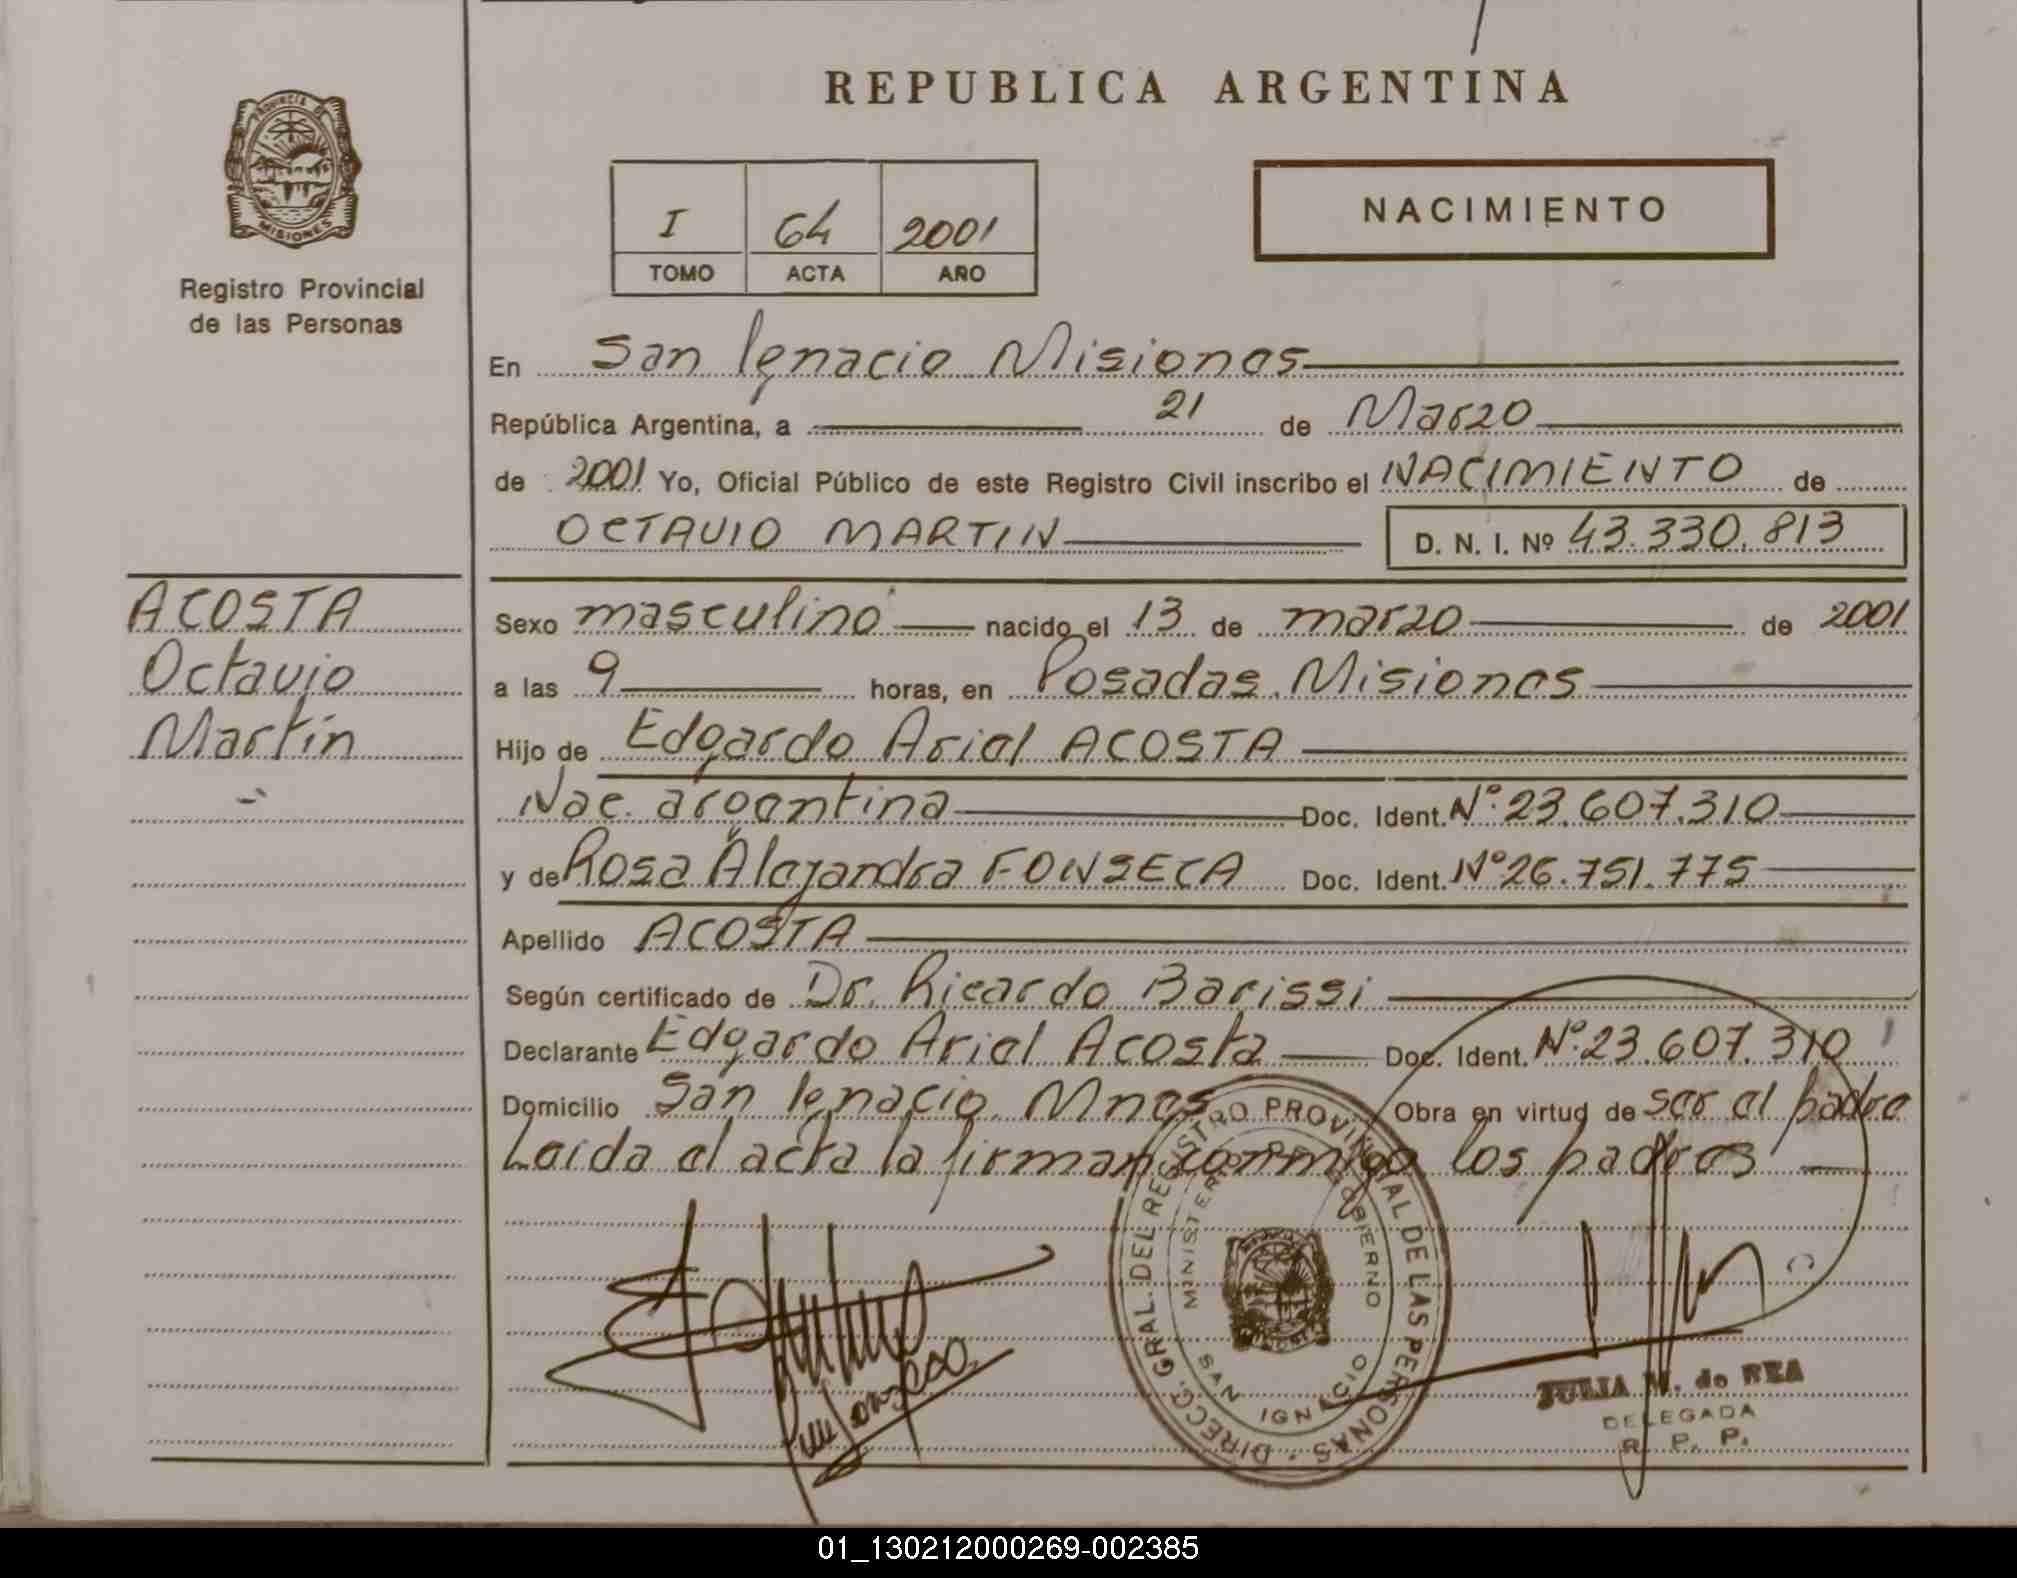 REPUBLICA ARGENTINA
PROVINCIA DE
MISIONES
Registro Provincial
de las Personas
I 64 2001
TOMO ACTA AÑO
NACIMIENTO
En San Ignacio Misiones
República Argentina, a 21 de Marzo
de 2001 Yo, Oficial Público de este Registro Civil inscribo el NACIMIENTO de
OCTAVIO MARTIN D. N. I. Nº 43.330.813
ACOSTA
Octavio
Martín
Sexo masculino nacido el 13 de marzo de 2001
a las 9 horas, en Posadas, Misiones
Hijo de Edgardo Ariel ACOSTA
Nac. argentina Doc. Ident. Nº 23.607.310
y de Rosa Alejandra FONSECA Doc. Ident. Nº 26.751.775
Apellido ACOSTA
Según certificado de Dr. Ricardo Barissi
Declarante Edgardo Ariel Acosta Doc. Ident. Nº 23.607.310
Domicilio San Ignacio, Mnes Obra en virtud de ser el padre
Leída el acta la firman conmigo los padres
DIRECC. GRAL. DEL REGISTRO PROVINCIAL DE LAS PERSONAS
MINISTERIO DE GOBIERNO
SAN IGNACIO
JULIA M. de REA
DELEGADA
R. P. P.
01_130212000269-002385